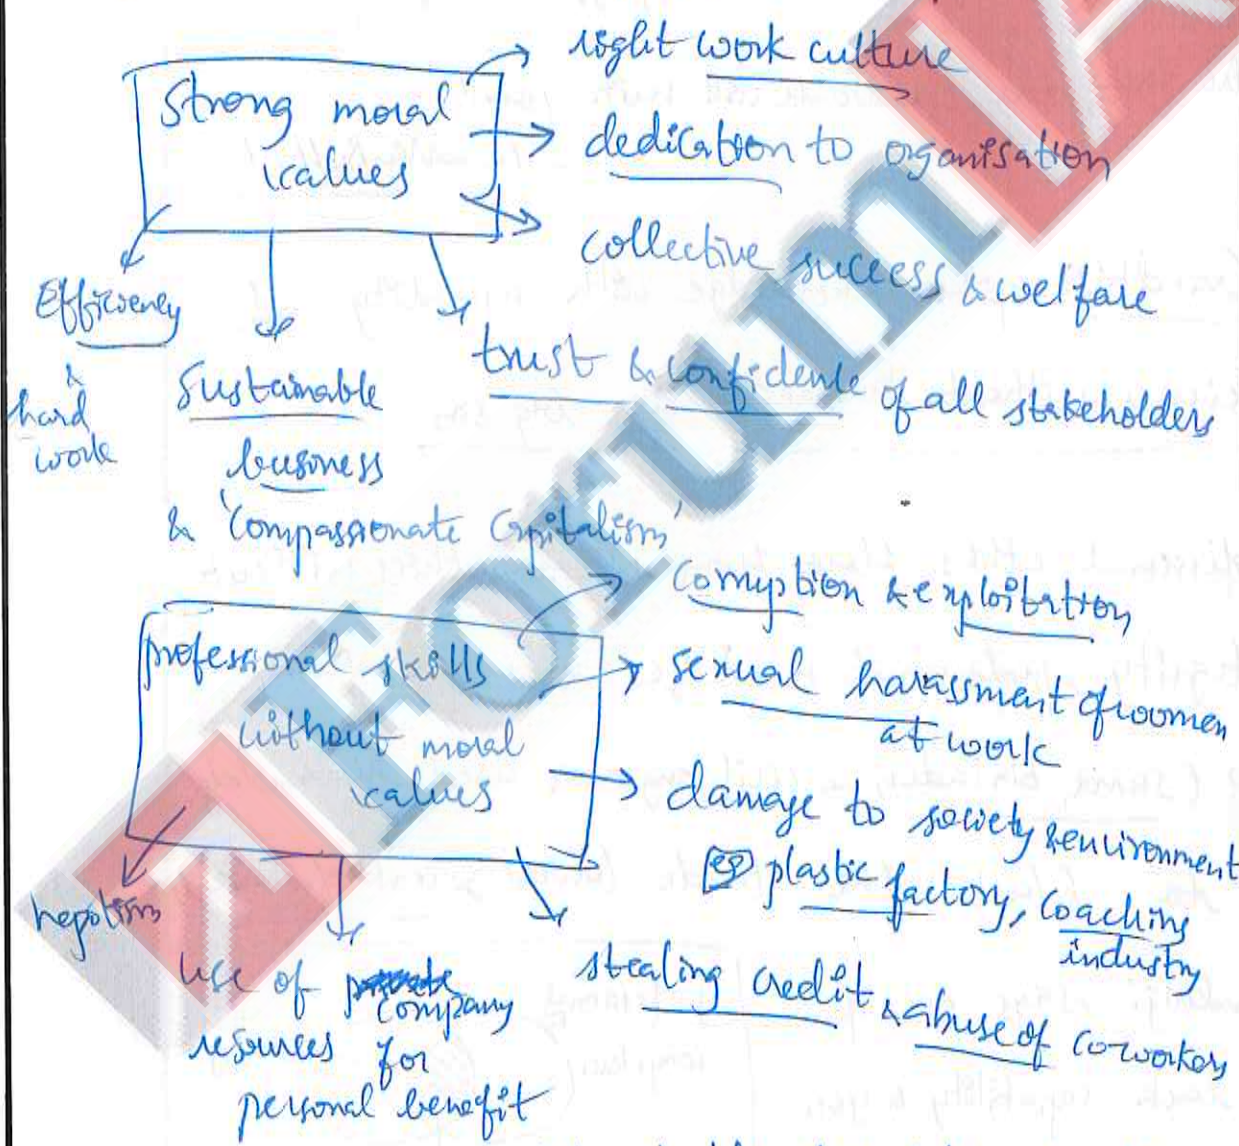 right work culture
Strong moral
values
dedication to organisation
collective success & welfare
Efficiency
&
hard
work
Sustainable
business
& 'Compassionate Capitalism'
trust & confidence of all stakeholders
professional skills
without moral
values
corruption & exploitation
sexual harassment of women
at work
damage to society & environment
eg plastic factory, coaching
industry
nepotism
use of company
resources for
personal benefit
stealing credit & abuse of coworkers
Forum IA